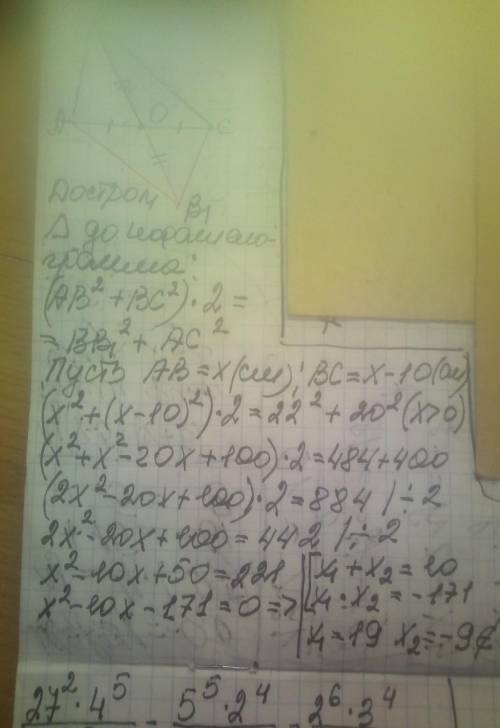 A O C
B₁
Достроим
Δ до паралелло-
грамма:
(AB² + BC²) · 2 =
= BB₁² + AC²
Пусть AB = x (см); BC = x - 10 (см)
(x² + (x-10)²) · 2 = 22² + 20² (x>0)
(x² + x² - 20x + 100) · 2 = 484 + 400
(2x² - 20x + 100) · 2 = 884 | ÷ 2
2x² - 20x + 100 = 442 | ÷ 2
x² - 10x + 50 = 221
x² - 10x - 171 = 0 =>
x₁ + x₂ = 10
x₁ · x₂ = -171
x₁ = 19 x₂ = -9
27² · 4⁵ 5⁵ · 2⁴ 2⁶ · 3⁴